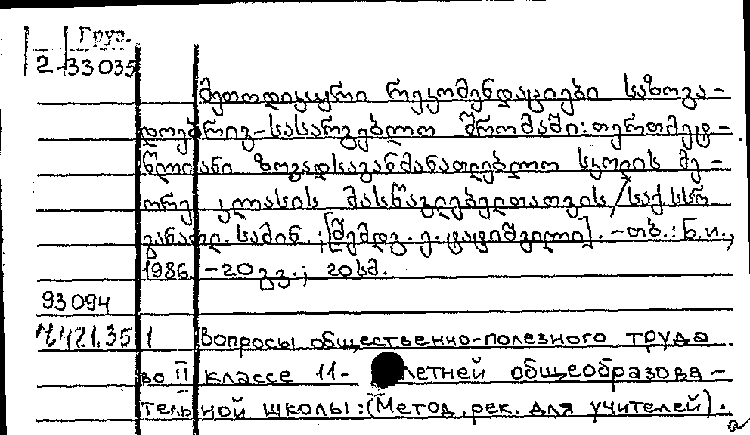 Груз.
2-33035
მეთოდიკური რეკომენდაციები საზოგა-
დოებრივ-სასარგებლო შრომაში: თერთმეტ-
წლიანი ზოგადსაგანმანათლებლო სკოლის მე-
ორე კლასის მასწავლებელთათვის / საქ. სსრ
განათლ. სამინ. ; [შემდგ. ე. ტატიშვილი]. - თბ. : Б.и.,
1986. - 20 გვ. ; 20 სმ.
93094
Ч421.35 1 Вопросы общественно-полезного труда
во II классе 11- летней общеобразова-
тельной школы: (Метод. рек. для учителей).